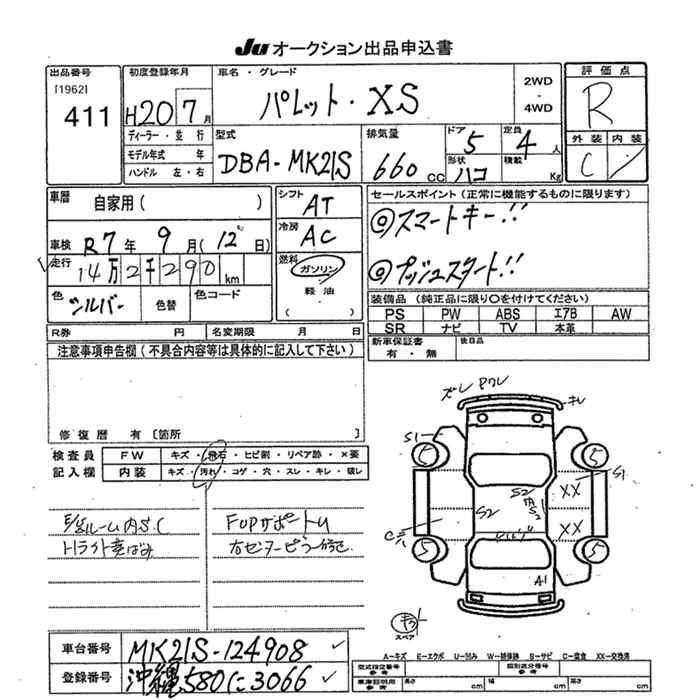 Ju オークション出品申込書
出品番号
[1962]
411
初度登録年月
H20 7月
ディーラー・並行
モデル年式 年
ハンドル 左・右
車名・グレード
パレット・XS
2WD
・
4WD
評価点
R
外装 内装
C
型式
DBA-MK21S
排気量
660cc
ドア 5
形状 ハコ
定員 4人
積載 Kg
車歴
自家用( )
車検 R7年 9月(12日)
走行 14万2千290km
色 シルバー
色替
色コード
シフト AT
冷房 AC
燃料 ガソリン
軽油
( )
セールスポイント(正常に機能するものに限ります)
◎スマートキー!!
◎プッシュスタート!!
装備品(純正品に限り〇を付けてください)
PS PW ABS エアB AW
SR ナビ TV 本革
新車保証書
有・無
後日品
R券 円 名変期限 月 日
注意事項申告欄(不具合内容等は具体的に記入して下さい)
修復歴 有〔箇所 〕
検査員
記入欄
FW キズ・飛石・ヒビ割・リペア跡・×要
内装 キズ・汚れ・コゲ・穴・スレ・キレ・破レ
ルーム内S.C
Hライト黄ばみ
FUPサポートU
右センターピラー修正
ズレ Pワレ
キレ
S1
5
5
S1
XX
S2
S2
XX
5
5
A1
スペア
車台番号 MK21S-124908
登録番号 沖縄580に3066
A-キズ E-エクボ U-凹み W-補修跡 S-サビ C-腐食 XX-交換済
型式指定番号
参考
類別区分番号
参考
車庫証明用
参考
長さ cm 幅 cm 高さ cm